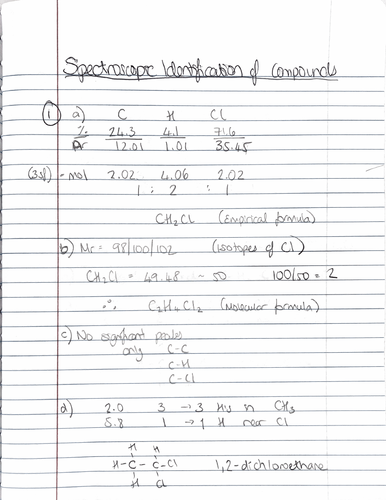 Spectroscopic Identification of Compounds
① a) C H Cl
% 24.3 4.1 71.6
Ar 12.01 1.01 35.45
(3sf) - mol 2.02 4.06 2.02
1 : 2 : 1
CH₂Cl (Empirical formula)
b) Mr = 98/100/102 (isotopes of Cl)
CH₂Cl = 49.48 ~ 50 100/50 = 2
∴ C₂H₄Cl₂ (Molecular formula)
c) No significant peaks
only C-C
C-H
C-Cl
d) 2.0 3 → 3 H's in CH₃
5.8 1 → 1 H near Cl
H H
H-C-C-Cl 1,2-dichloroethane
H Cl